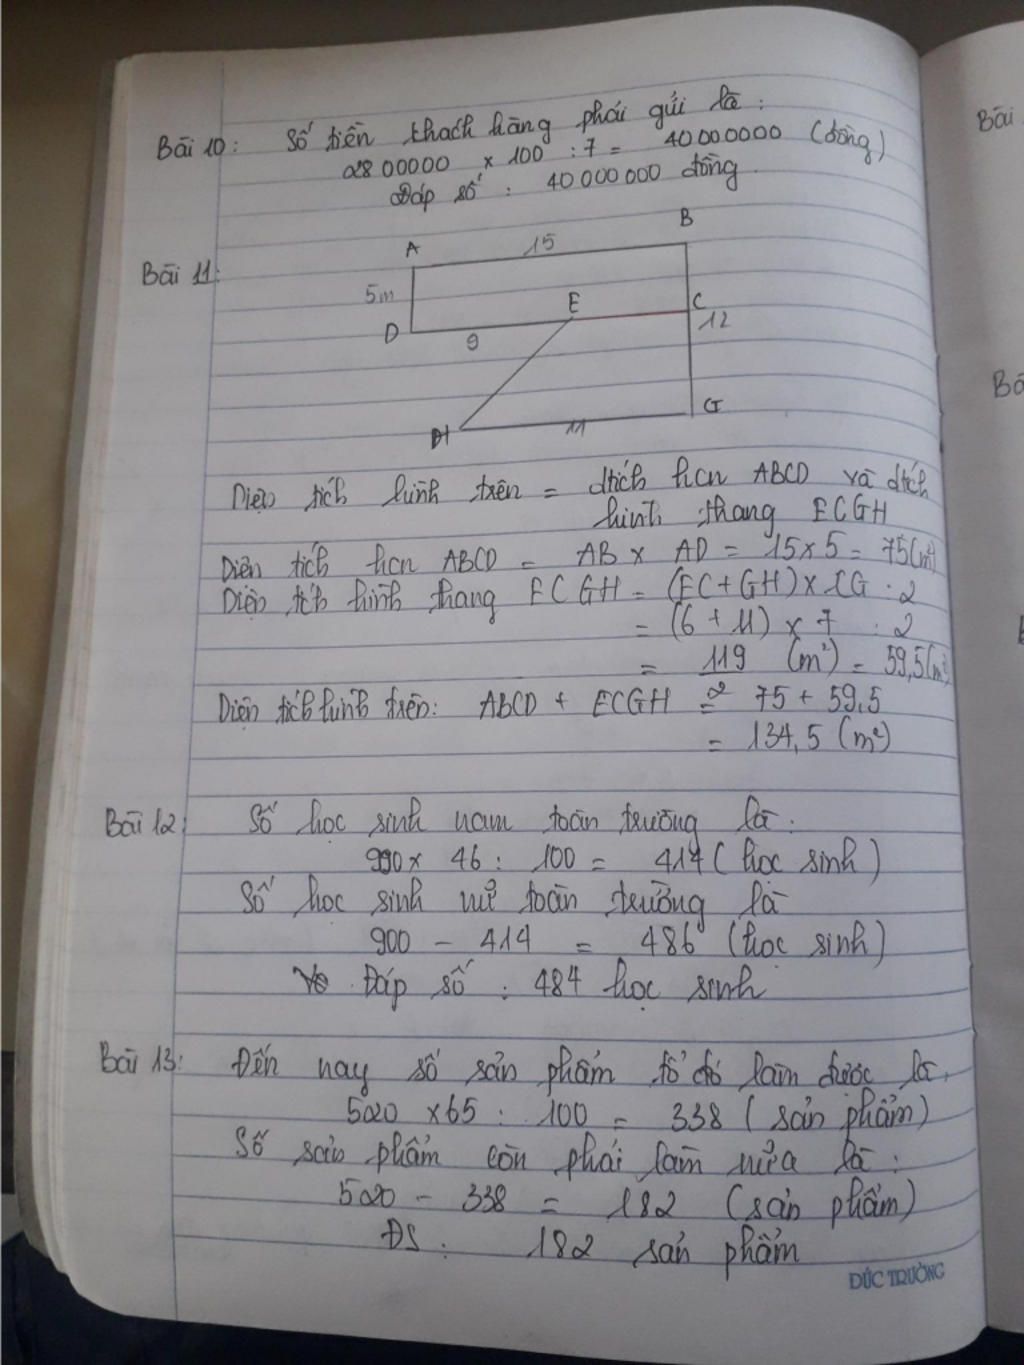 Bài 10: Số tiền khách hàng phải gửi là :
2800000 x 100 : 7 = 40000000 (đồng)
Đáp số : 40 000 000 đồng.
Bài 11:
A 15 B
5m
D 9 E C
12
H 11 G
Diện tích hình trên = dtích hcn ABCD và dtích
hình thang ECGH
Diện tích hcn ABCD = AB x AD = 15 x 5 = 75(m²)
Diện tích hình thang ECGH = (EC + GH) x CG : 2
= (6 + 11) x 7 : 2
= 119/2 (m²) = 59,5(m²)
Diện tích hình trên: ABCD + ECGH = 75 + 59,5
= 134,5 (m²)
Bài 12: Số học sinh nam toàn trường là :
990 x 46 : 100 = 414 ( học sinh )
Số học sinh nữ toàn trường là
900 - 414 = 486 (học sinh)
Đáp số : 484 học sinh
Bài 13: Đến nay số sản phẩm tổ đó làm được là.
520 x 65 : 100 = 338 ( sản phẩm)
Số sản phẩm còn phải làm nữa là :
520 - 338 = 182 (sản phẩm)
ĐS : 182 sản phẩm
ĐỨC TRƯỜNG
Bài
Bà